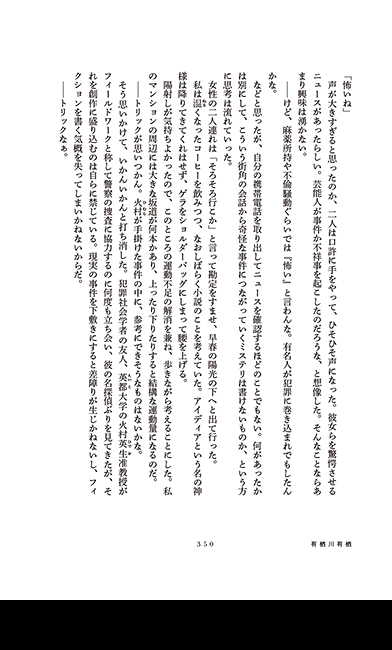 「怖いね」
　声が大きすぎると思ったのか、二人は口許に手をやって、ひそひそ声になった。彼女らを驚愕させる
ニュースがあったらしい。芸能人が事件か不祥事を起こしたのだろうな、と想像した。そんなことならあ
まり興味は湧かない。
　――けど、麻薬所持や不倫騒動ぐらいでは『怖い』と言わんな。有名人が犯罪に巻き込まれでもしたん
かな。
　などと思ったが、自分の携帯電話を取り出してニュースを確認するほどのことでもない。何があったか
は別にして、こういう街角の会話から奇怪な事件につながっていくミステリは書けないものか、という方
に思考は流れていった。
　女性の二人連れは「そろそろ行こか」と言って勘定をすませ、早春の陽光の下へと出て行った。
　私は温くなったコーヒーを飲みつつ、なおしばらく小説のことを考えていた。アイディアという名の神
様は降りてきてくれはせず、ゲラをショルダーバッグにしまって腰を上げる。
　陽射しが気持ちよかったので、このところの運動不足の解消を兼ね、歩きながら考えることにした。私
のマンションの周辺には大きな坂道が何本かあり、上ったり下りたりすると結構な運動量になるのだ。
　――トリックが思いつかん。火村が手掛けた事件の中に、参考にできそうなものはないかな。
　そう思いかけて、いかんいかんと打ち消した。犯罪社会学者の友人、英都大学の火村英生准教授が
フィールドワークと称して警察の捜査に協力するのに何度も立ち会い、彼の名探偵ぶりを見てきたが、そ
れを創作に盛り込むのは自らに禁じている。現実の事件を下敷きにすると差障りが生じかねないし、フィ
クションを書く気概を失ってしまいかねないからだ。
　――トリックなぁ。
350
有栖川有栖